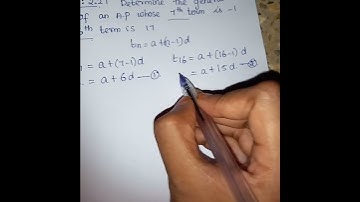 2.27 Determine the general
of an A.P whose 7th term is -1
th term is 17
tn = a+(n-1)d
= a+(7-1)d t16 = a+(16-1)d
= a+6d —① = a+15d —②